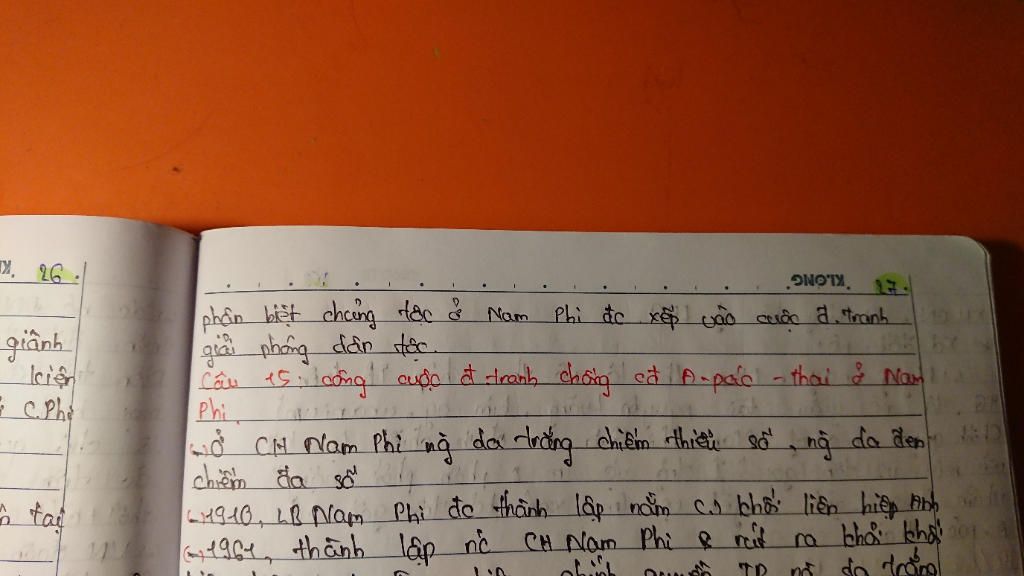 26.
giành
kiện
C.Phi
tại
KLONG
27.
phân biệt chủng tộc ở Nam Phi đc xếp vào cuộc đ.tranh
giải phóng dân tộc.
Câu 15: công cuộc đ.tranh chống cđ A-pác-thai ở Nam
Phi
Ở CH Nam Phi ng da trắng chiếm thiểu số, ng da đen
chiếm đa số
1910, LB Nam Phi đc thành lập nằm khối liên hiệp Anh
1961, thành lập nc CH Nam Phi & rút ra khỏi khối
da trắng